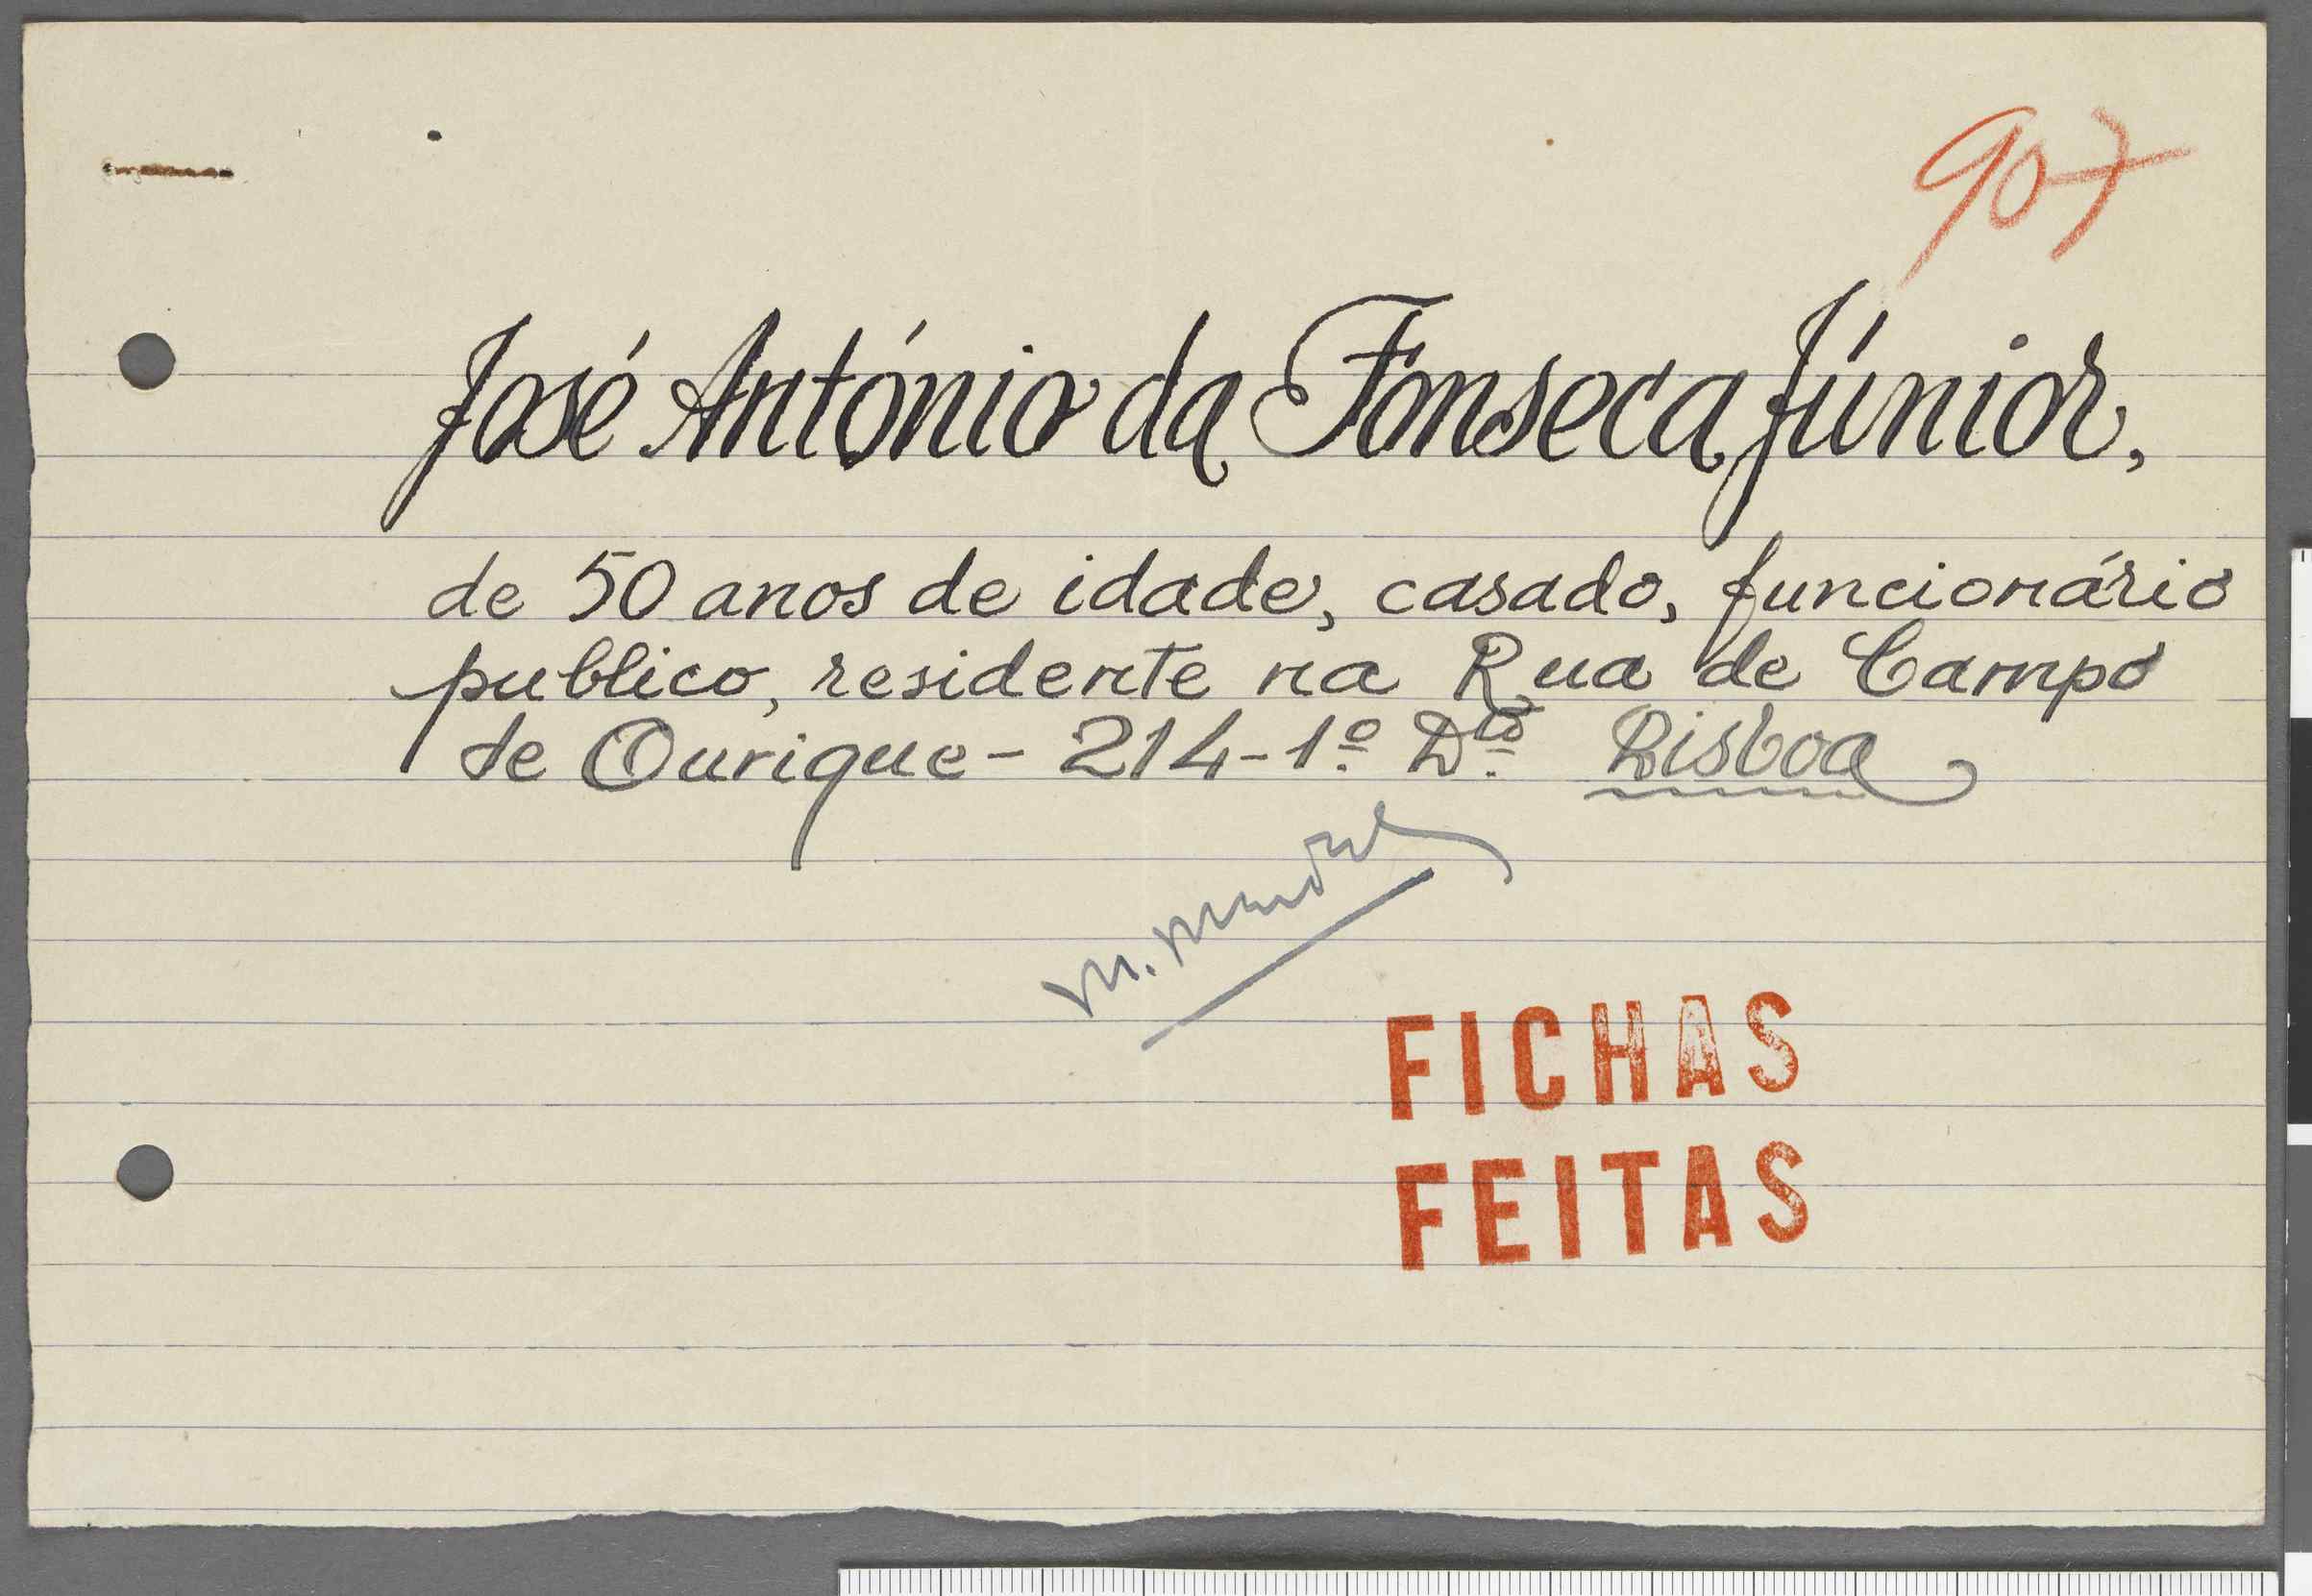 907
José António da Fonseca Júnior,
de 50 anos de idade, casado, funcionário
publico, residente na Rua de Campo
de Ourique - 214 - 1º Dto. Lisboa
FICHAS
FEITAS